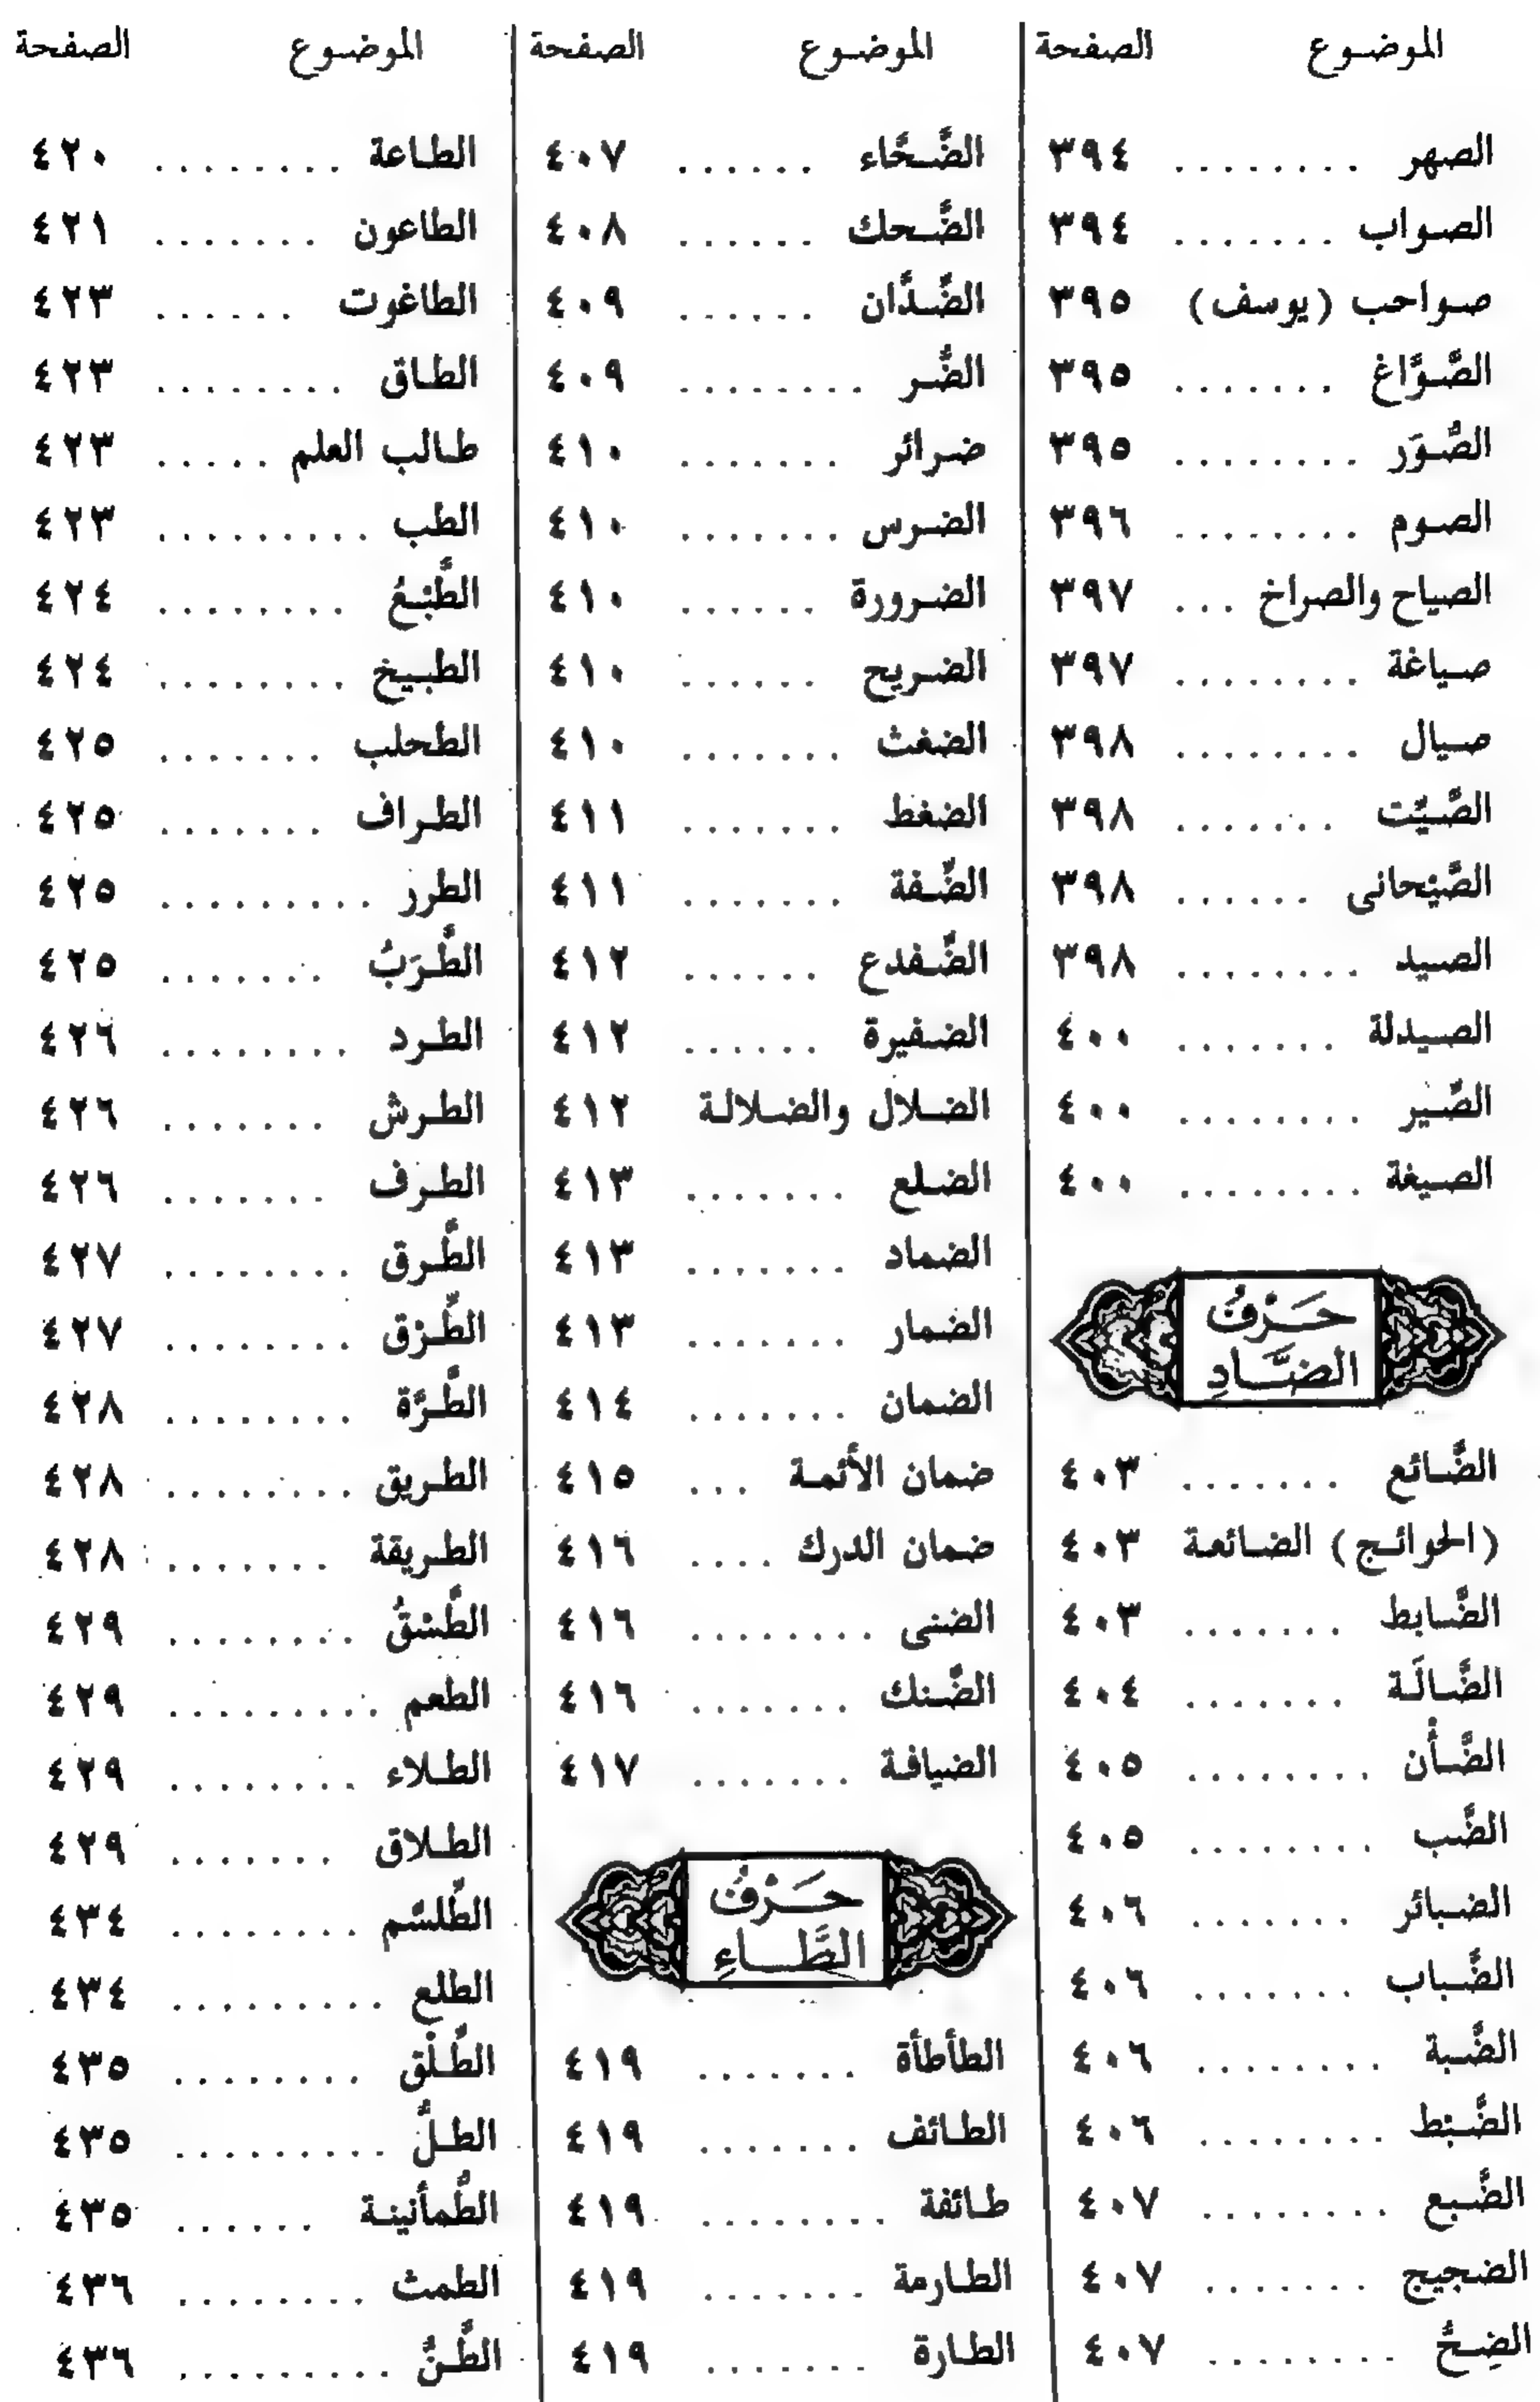 الموضوع الصفحة
الصهر ........ ٣٩٤
الصواب ....... ٣٩٤
صواحب (يوسف) ٣٩٥
الصَّوَّاغ ....... ٣٩٥
الصُّوَر ........ ٣٩٥
الصوم ........ ٣٩٦
الصياح والصراخ ... ٣٩٧
صياغة ........ ٣٩٧
صيال ........ ٣٩٨
الصَّيِّت ....... ٣٩٨
الصَّيْحانى ...... ٣٩٨
الصيد ........ ٣٩٨
الصيدلة ....... ٤٠٠
الصِّير ........ ٤٠٠
الصيغة ........ ٤٠٠
حَرْفُ
الضَّادِ
الضَّائع ....... ٤٠٣
(الحوائج) الضائعة ٤٠٣
الضَّابط ....... ٤٠٣
الضَّالَة ....... ٤٠٤
الضَّأن ........ ٤٠٥
الضَّب ........ ٤٠٥
الضبائر ....... ٤٠٦
الضَّباب ....... ٤٠٦
الضَّبة ........ ٤٠٦
الضَّبْط ........ ٤٠٦
الضَّبع ........ ٤٠٧
الضجيج ....... ٤٠٧
الضِحُّ ........ ٤٠٧
الموضوع الصفحة
الضَّحَّاء ...... ٤٠٧
الضَّحك ...... ٤٠٨
الضِّدَّان ...... ٤٠٩
الضُّر ........ ٤٠٩
ضرائر ....... ٤١٠
الضرس ....... ٤١٠
الضرورة ...... ٤١٠
الضريح ...... ٤١٠
الضغث ....... ٤١٠
الضغط ....... ٤١١
الضِّفة ....... ٤١١
الضِّفدع ...... ٤١٢
الضفيرة ...... ٤١٢
الضلال والضلالة ٤١٢
الضلع ....... ٤١٣
الضماد ....... ٤١٣
الضمار ....... ٤١٣
الضمان ....... ٤١٤
ضمان الأئمة ... ٤١٥
ضمان الدرك .... ٤١٦
الضنى ........ ٤١٦
الضَّنك ....... ٤١٦
الضيافة ....... ٤١٧
حَرْفُ
الطَّاءِ
الطأطأة ....... ٤١٩
الطائف ....... ٤١٩
طائفة ........ ٤١٩
الطارمة ....... ٤١٩
الطارة ....... ٤١٩
الموضوع الصفحة
الطاعة ........ ٤٢٠
الطاعون ....... ٤٢١
الطاغوت ...... ٤٢٣
الطاق ........ ٤٢٣
طالب العلم ..... ٤٢٣
الطب ......... ٤٢٣
الطَّبْعُ ........ ٤٢٤
الطبيخ ........ ٤٢٤
الطحلب ....... ٤٢٥
الطراف ....... ٤٢٥
الطرر ......... ٤٢٥
الطَّرَبُ ....... ٤٢٥
الطرد ........ ٤٢٦
الطرش ....... ٤٢٦
الطرف ....... ٤٢٦
الطَّرق ........ ٤٢٧
الطِّرْق ........ ٤٢٧
الطُّرَّة ........ ٤٢٨
الطريق ........ ٤٢٨
الطريقة ....... ٤٢٨
الطَّسْقُ ........ ٤٢٩
الطعم ......... ٤٢٩
الطلاء ........ ٤٢٩
الطلاق ....... ٤٢٩
الطِّلسَّم ........ ٤٣٤
الطلع ......... ٤٣٤
الطَّلْق ........ ٤٣٥
الطلُّ ......... ٤٣٥
الطُّمأنينة ...... ٤٣٥
الطمث ........ ٤٣٦
الطَّنُّ ......... ٤٣٦